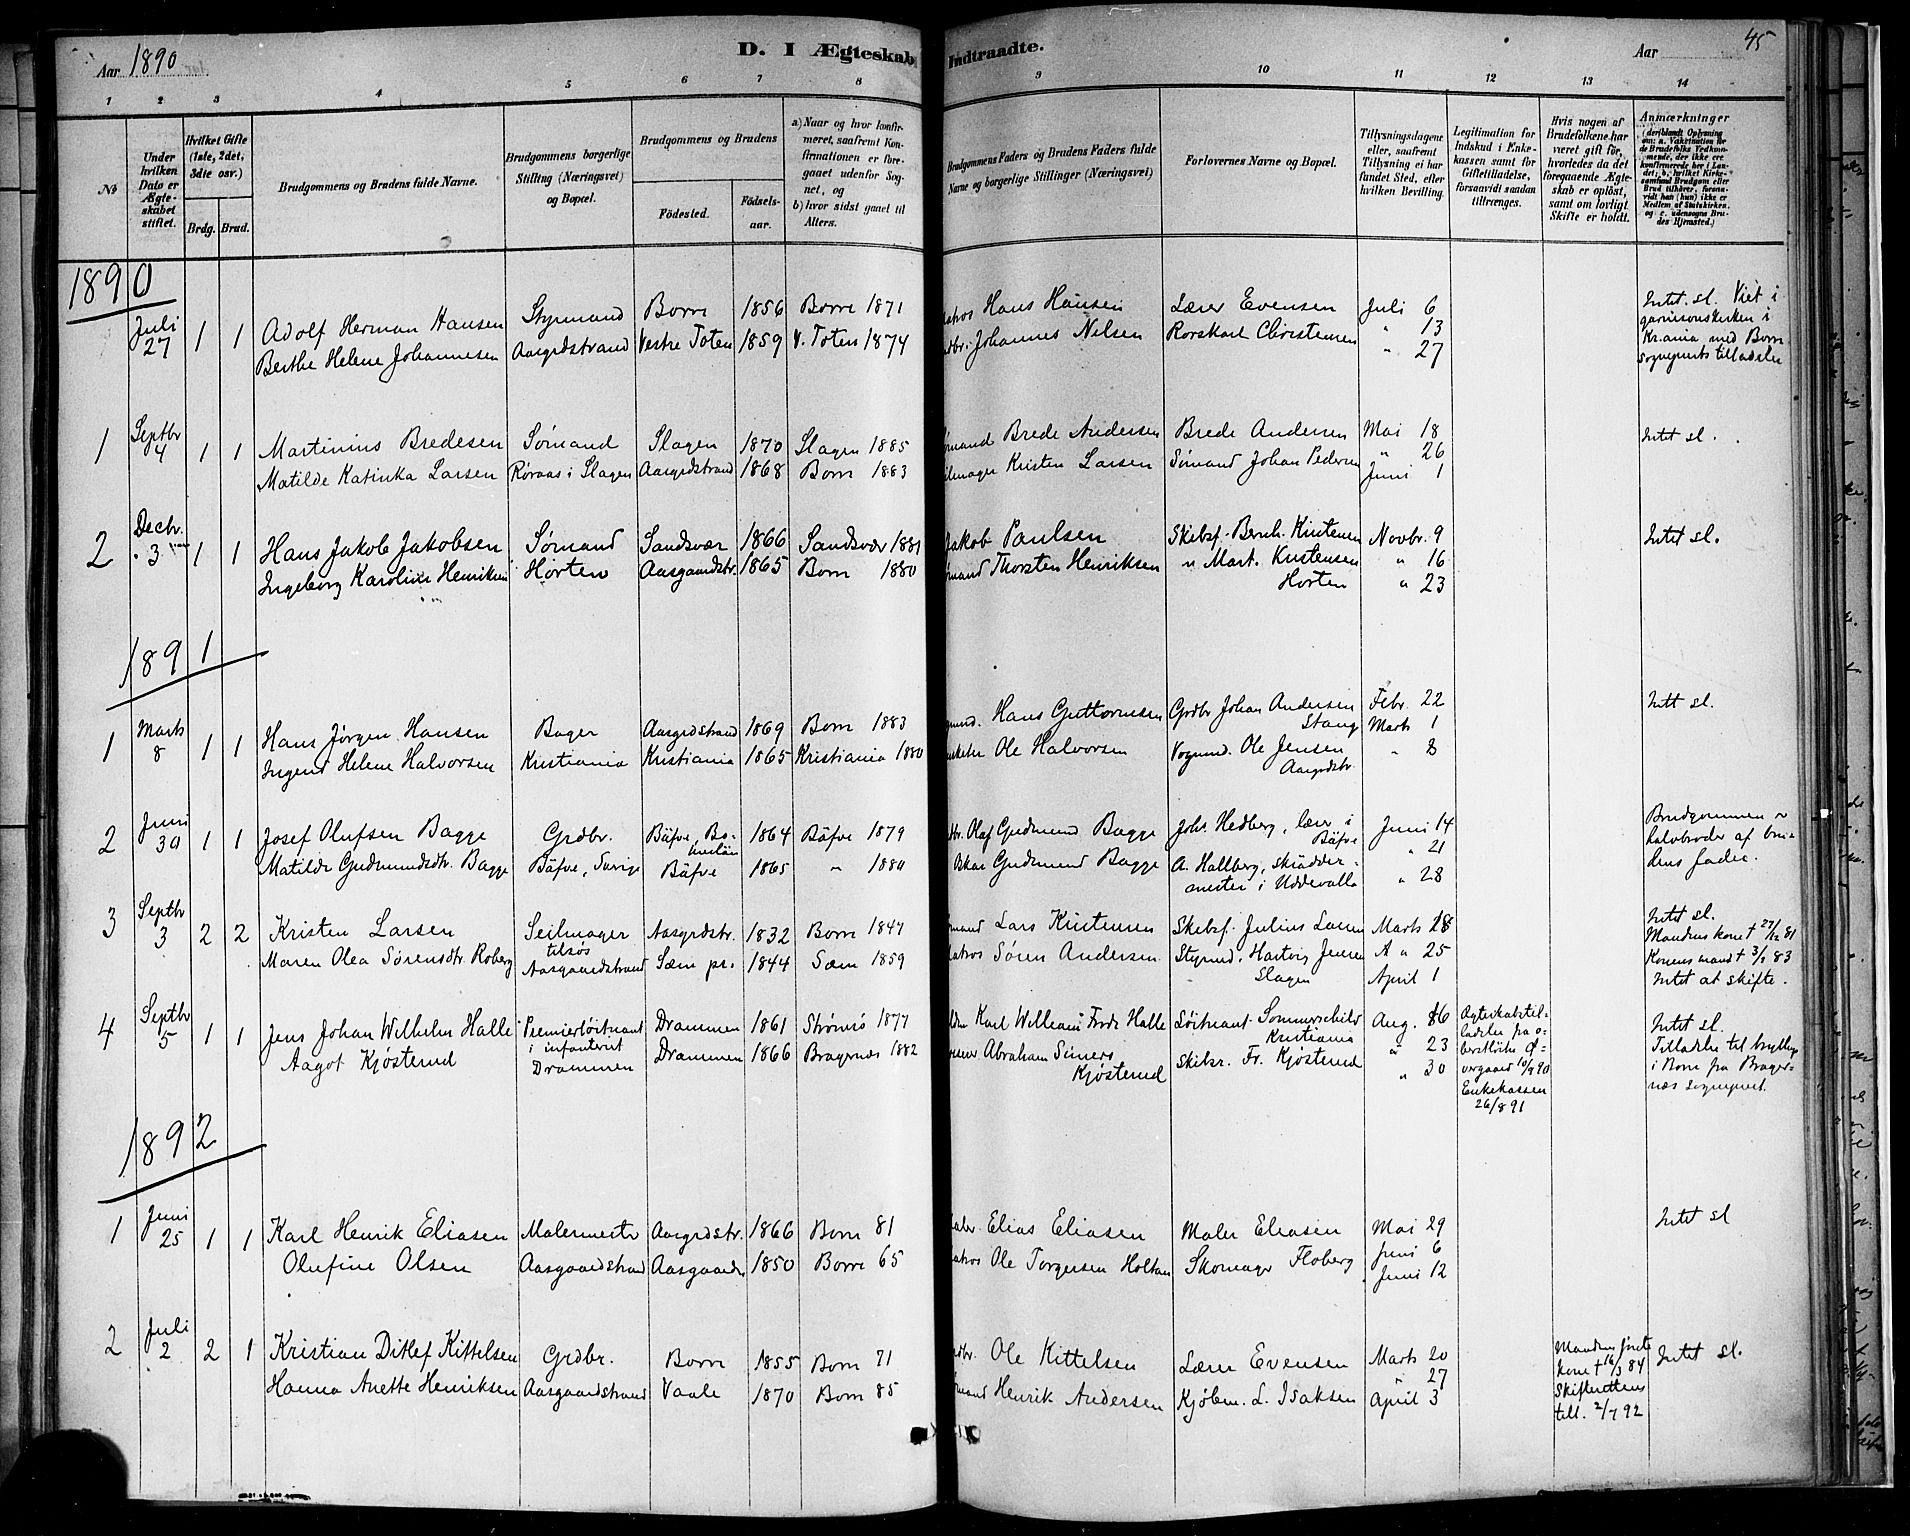 Aar 1890
D. I Ægteskab Indtraadte.
Aar
45
1 2 3 4 5 6 7 8 9 10 11 12 13 14
№
Under hvilken Dato er Ægteskabet stiftet.
Hvilket Gifte (1ste, 2det, 3die osv.)
Brdg. Brud.
Brudgommens og Brudens fulde Navne.
Brudgommens borgerlige Stilling (Næringsvei) og Bopæl.
Brudgommens og Brudens
Fødested.
Fødselsaar.
a) Naar og hvor konfirmeret, saafremt Konfirmationen er foregaaet udenfor Sognet, og
b) hvor sidst gaaet til Alters.
Brudgommens Faders og Brudens Faders fulde Navne og borgerlige Stillinger (Næringsvei)
Forlovernes Navne og Bopæl.
Tillysningsdagene eller, saafremt Tillysning ei har fundet Sted, efter hvilken Bevilling.
Legitimation for Indskud i Enkekassen samt for Giftetilladelse, forsaavidt saadan tiltrænges.
Hvis nogen af Brudefolkene har været gift før, hvorledes da det foregaaende Ægteskab er opløst, samt om lovligt Skifte er holdt.
Anmærkninger
(deriblandt Oplysning om: a. Vakcination for de Brudefolks Vedkommende, der ikke ere konfirmerede her i Landet; b. hvilket Kirkesamfund Brudgom eller Brud tilhører, forsaavidt han (hun) ikke er Medlem af Statskirken, og c. udensogns Brudes Hjemsted.)
1890
Juli 27 1 1 Adolf Herman Hansen Styrmand Borre 1856 Borre 1871 Hans Hansen Lærer Evensen Juli 6 Intet sl. Viet i
Berthe Helene Johannesen Aasgrdstrand Vestre Toten 1859 V. Toten 1874 Johannes Nilsen Rorskarl Christensen " 13 garnisonskirken i
" 27 Kr.ania med Borre
sogneprests tilladelse
1 Septbr 4 1 1 Martinius Bredesen Sømand Slagen 1870 Slagen 1885 Brede Andersen Brede Andersen Mai 18 Intet sl.
Matilde Katinka Larsen Røraas i Slagen Aasgrdstrand 1868 Borre 1883 Kristen Larsen Sømand Johan Pedersen " 26
Juni 1
2 Decbr. 3 1 1 Hans Jakob Jakobsen Sømand Sandsvær 1866 Sandsvær 1881 Jakob Paulsen Skibsf. Bernh. Kristensen Novbr. 9 Intet sl.
Ingeborg Karoline Henriksen Horten Aasgaardstr. 1865 Borre 1880 Thorsten Henriksen " Mart. Kristensen " 16
Horten " 23
1891
1 Marts 8 1 1 Hans Jørgen Hansen Bager Aasgrdstrand 1869 Borre 1883 Hans Guttormsen Grdbr Johan Andersen Febr. 22 Intet sl.
Stang Marts 1
Ingend Helene Halvorsen Kristiania Kristiania 1865 Kristiania 1880 Ole Halvorsen Vognmd. Ole Jensen " 8
Aasgrdstr.
2 Juni 30 1 1 Josef Olufsen Bagge Grdbr. Bäfve, Bohuslän 1864 Bäfve 1879 Olaf Gudmund Bagge Joh. Hedberg, lærer i Juni 14 Brudgommen
Bäfve " 21 halvbroder af bru-
Matilde Gudmundsdtr. Bagge Bäfve, Sverige Bäfve 1865 " 1880 Oskar Gudmund Bagge A. Hallberg, skrädder- dens fader.
mester i Uddevalla " 28
3 Septbr 3 2 2 Kristen Larsen Seilmager Aasgrdstr. 1832 Borre 1847 Lars Kristensen Skibsf. Julius Larsen Marts 18 Intet sl.
tilsøs Mandens kone † 27/12 81
Maren Olea Sørensdtr. Roberg Aasgaardstrand Sæm pr. 1844 Sæm 1859 Søren Andersen Styrmd. Hartvig Jensen " 25 Konens mand † 3/9 83
Slagen April 1 Intet at skifte.
4 Septbr 5 1 1 Jens Johan Wilhelm Halle Premierløitnant Drammen 1861 Strømsø 1877 Karl William Fredr. Halle Løitnant Sommerschild Aug. 16 Ægteskabstil- Intet sl.
i infanteriet Kristiania ladelse fra o- Tilladelse til bryllup
Aagot Kjøsterud Drammen Drammen 1866 Bragernæs 1882 Abraham Simers Skibsr. Fr. Kjøsterud " 23 berstløitn. Ø- i Borre fra Brager-
Kjøsterud " 30 vergaard 10/9 90 næs sogneprest.
Enkekassen
26/8 91
1892
1 Juni 25 1 1 Karl Henrik Eliasen Malermester Aasgrdstr. 1866 Borre 81 Elias Eliasen Maler Eliasen Mai 29 Intet sl
Olufine Olsen Aasgaardstrand Aasgaards 1850 Borre 65 Ole Torgersen Holtan Skomager Floberg Juni 6
Juni 12
2 Juli 2 2 1 Kristian Ditlef Kittelsen Grdbr. Borre 1855 Borre 71 Ole Kittelsen Lærer Evensen Marts 20 Mandens første Intet sl.
" 27 kone † 16/3 84
Hanna Anette Henriksen Aasgaardstrand Vaale 1870 Borre 85 Henrik Andersen Kjøbm. L. Isaksen April 3 Skifterettens
till. 2/7 92